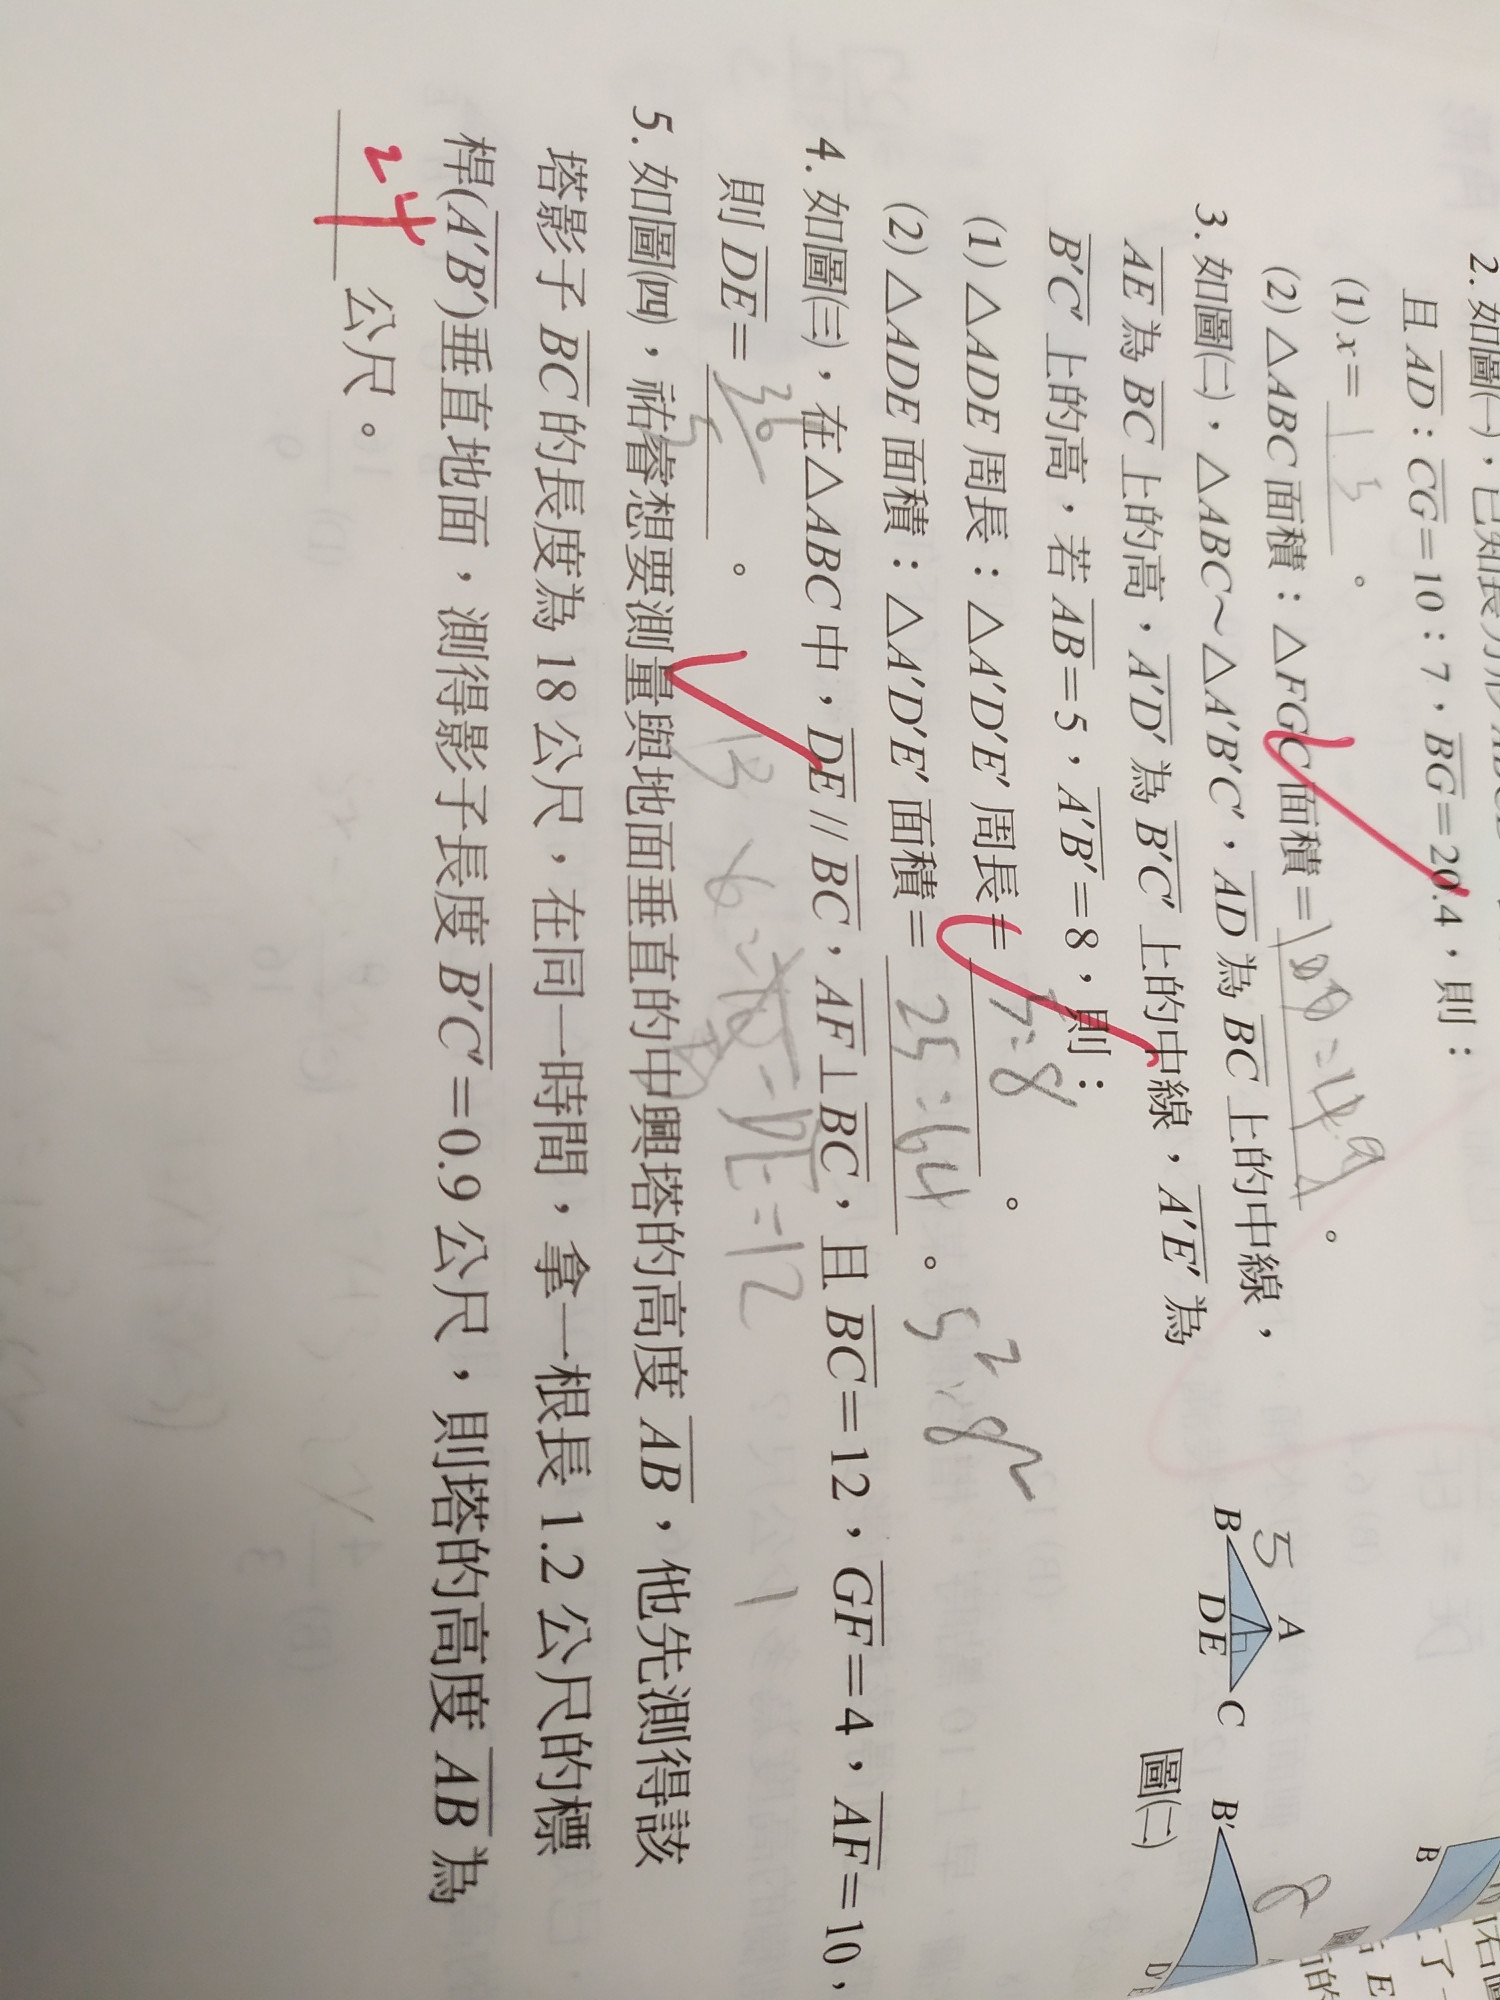 2. 如圖㈠，已知長方形ABCD
且 AD：CG＝10：7，BG＝20.4，則：
(1) x＝
(2) △ABC 面積：△FGC 面積＝
3. 如圖㈡，△ABC～△A′B′C′，AD 為 BC 上的中線，
AE 為 BC 上的高，A′D′ 為 B′C′ 上的中線，A′E′ 為
B′C′ 上的高，若 AB＝5，A′B′＝8，則：
(1) △ADE 周長：△A′D′E′ 周長＝ 5:8 。
(2) △ADE 面積：△A′D′E′ 面積＝ 25:64 。
5² 8²
4. 如圖㈢，在△ABC 中，DE // BC，AF⊥BC，且 BC＝12，GF＝4，AF＝10，
則 DE＝ 36/5 。
5. 如圖㈣，祐睿想要測量與地面垂直的中興塔的高度 AB，他先測得該
塔影子 BC 的長度為 18 公尺，在同一時間，拿一根長 1.2 公尺的標
桿(A′B′)垂直地面，測得影子長度 B′C′＝0.9 公尺，則塔的高度 AB 為
24 公尺。
A
5
B D E C
B′
8
D′
圖㈡
B